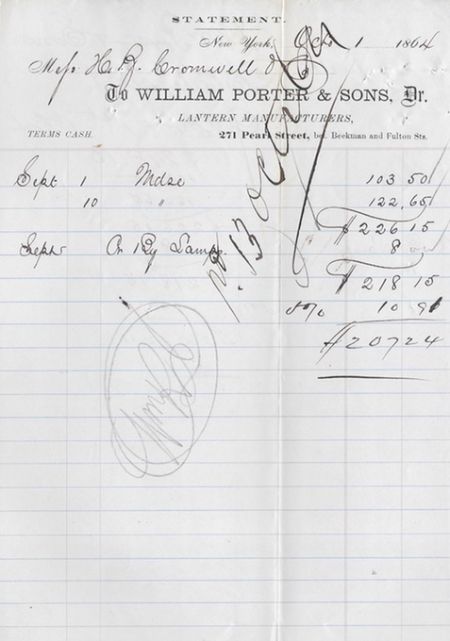 STATEMENT.
New York, Oct 1 1864
Mess H. & J. Cromwell &
To WILLIAM PORTER & SONS, Dr.
LANTERN MANUFACTURERS,
TERMS CASH. 271 Pearl Street, bet. Beekman and Fulton Sts.
Sept 1 Mdse 103 50
10 " 122,65
$ 226 15
Sept Cr By Lamps. 8
$ 218 15
5% 10 91
$207 24